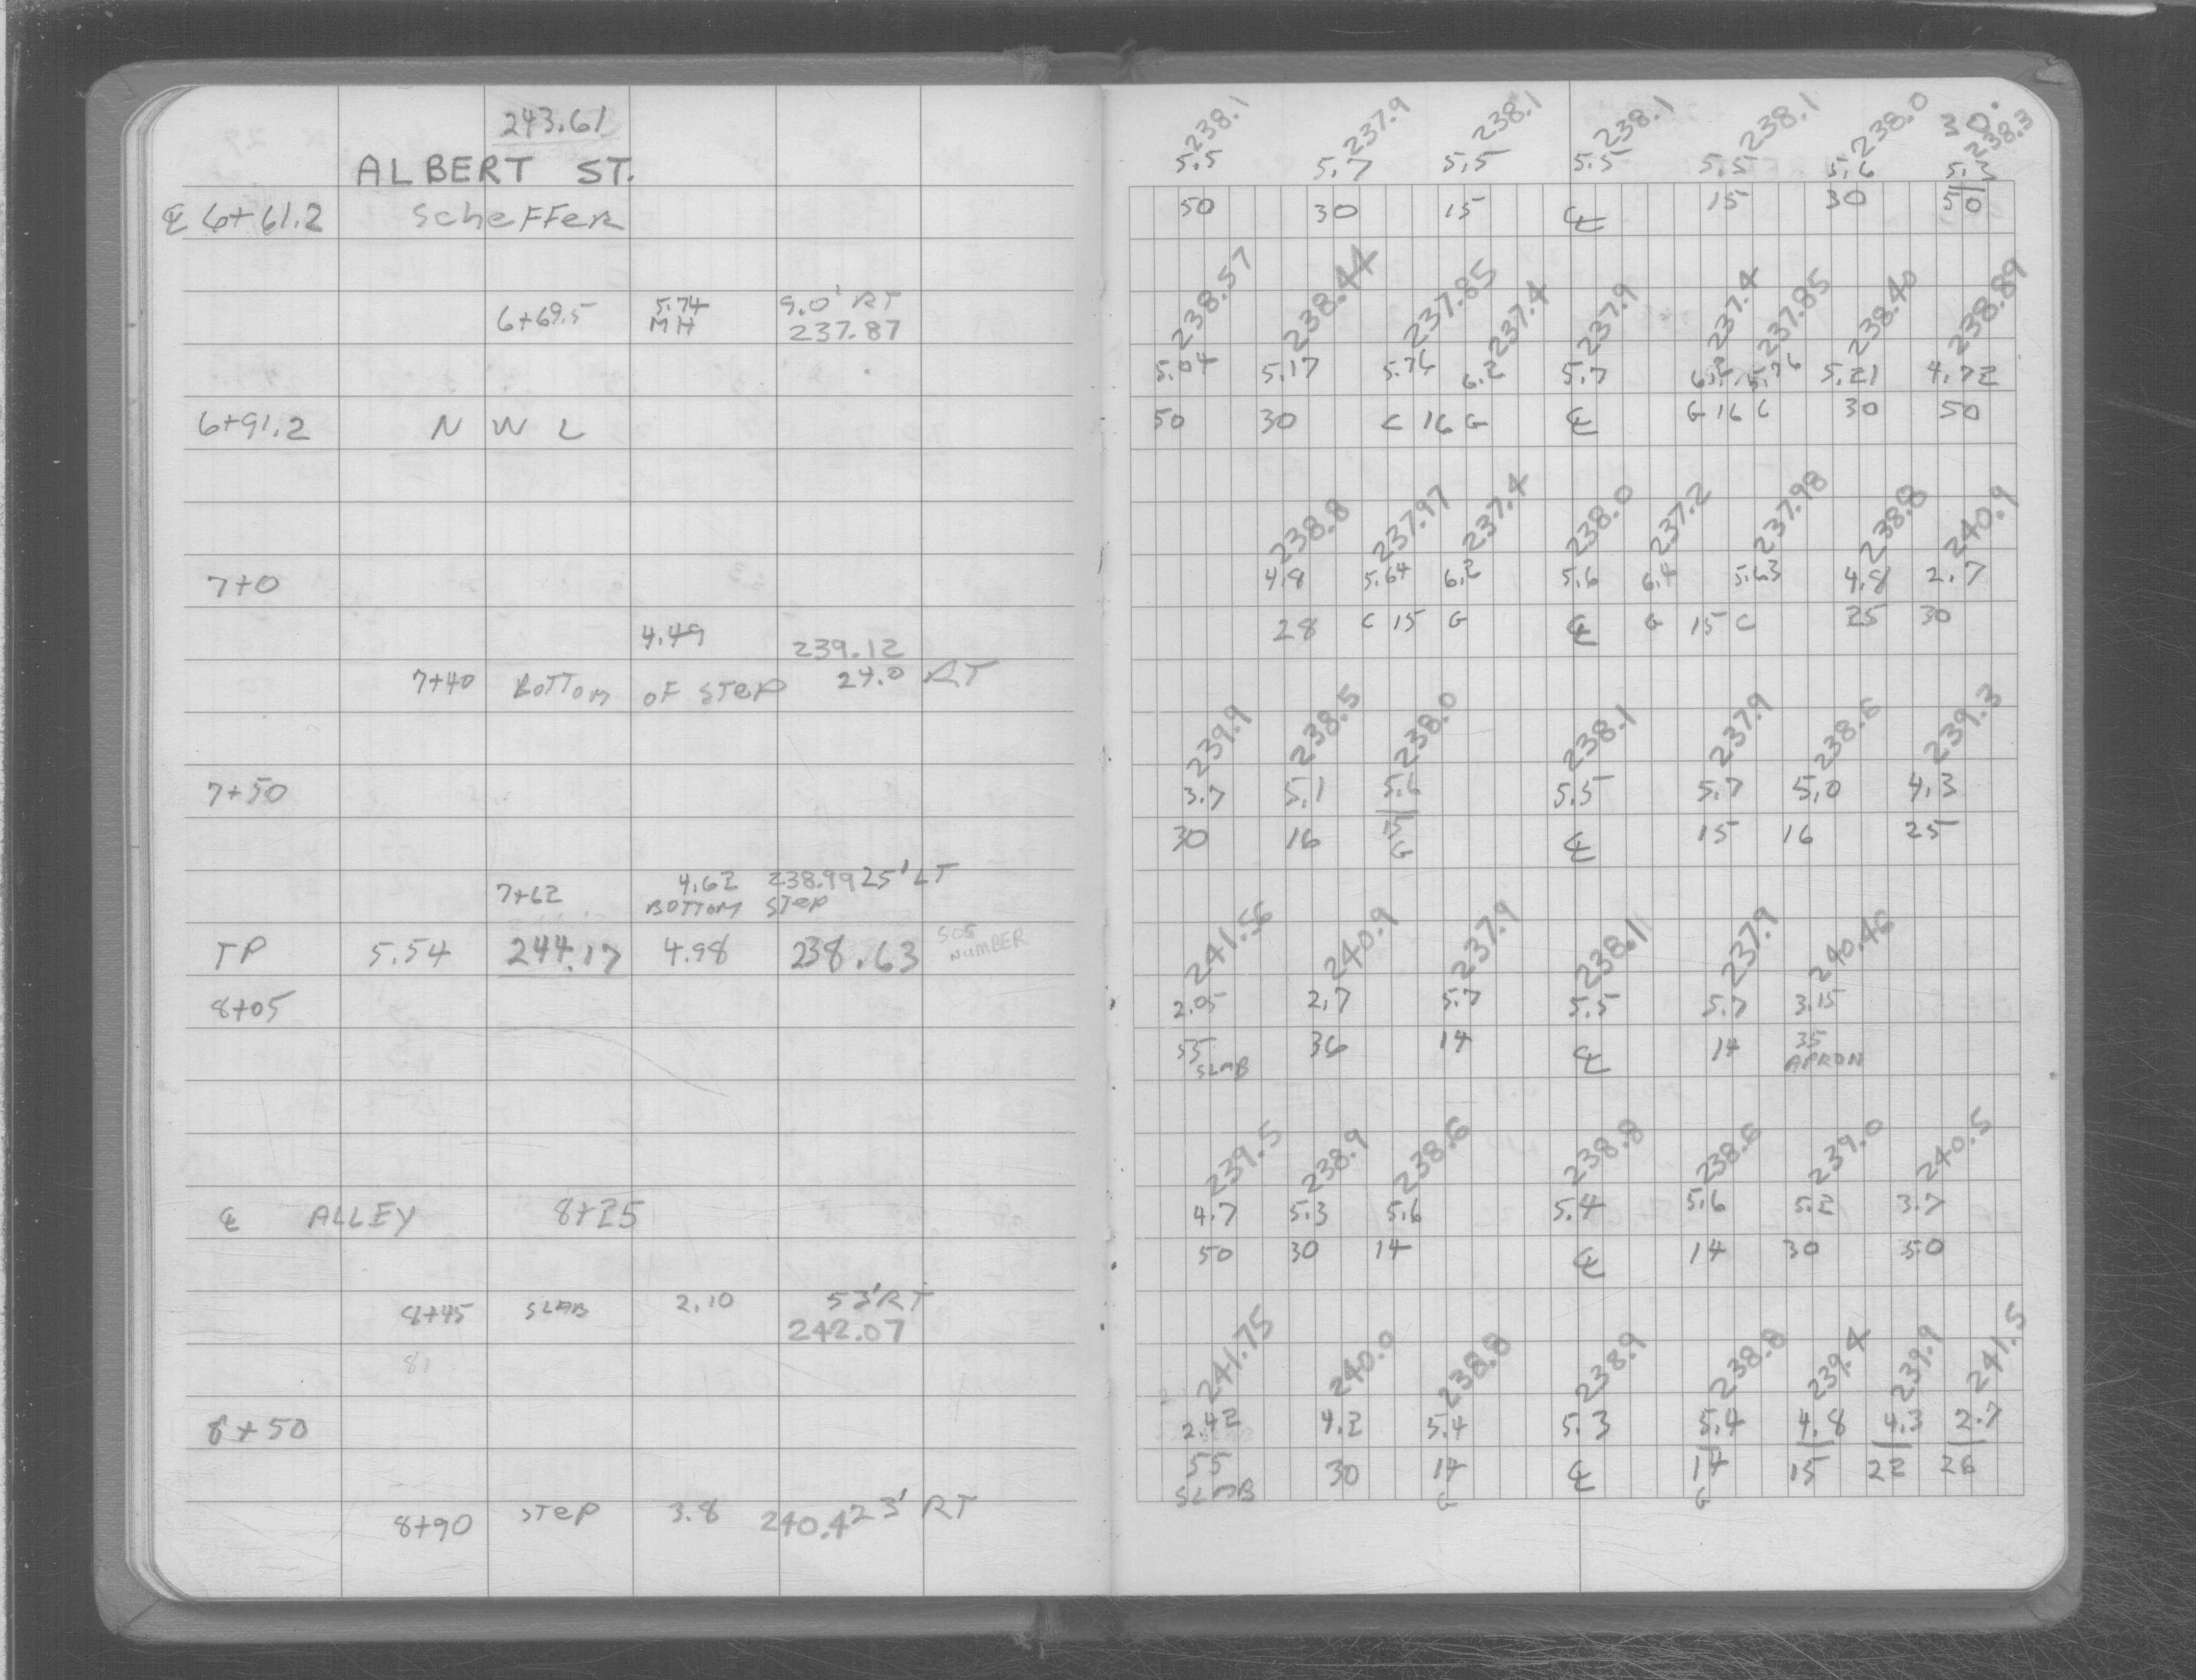 243.61
ALBERT ST.
℄ 6+61.2 SCHEFFER
6+69.5 5.74 9.0' RT
MH 237.87
6+91.2 N W L
7+0
4.49 239.12
7+40 BOTTOM OF STEP 24.0 RT
7+50
7+62 4.62 238.99 25' LT
BOTTOM STEP
TP 5.54 244.17 4.98 238.63 505 NUMBER
8+05
℄ ALLEY 8+25
8+45 SLAB 2.10 53' RT
242.07
81
8+50
8+90 STEP 3.8 240.4 23' RT
30.
238.1 237.9 238.1 238.1 238.1 238.0 238.3
5.5 5.7 5.5 5.5 5.5 5.6 5.3
50 30 15 ℄ 15 30 50
238.57 238.44 237.85 237.4 237.9 237.4 237.85 238.40 238.89
5.04 5.17 5.76 6.2 5.7 6.2 5.76 5.21 4.72
50 30 C 16 G ℄ G 16 C 30 50
238.8 237.97 237.4 238.0 237.2 237.98 238.8 240.9
4.8 5.64 6.2 5.6 6.4 5.63 4.8 2.7
28 C 15 G ℄ G 15 C 25 30
239.9 238.5 238.0 238.1 237.9 238.6 239.3
3.7 5.1 5.6 5.5 5.7 5.0 4.3
30 16 15 ℄ 15 16 25
G
241.56 240.9 237.9 238.1 237.9 240.46
2.05 2.7 5.7 5.5 5.7 3.15
55 36 14 ℄ 14 35
SLAB APRON
239.5 238.9 238.6 238.8 238.6 239.0 240.5
4.7 5.3 5.6 5.4 5.6 5.2 3.7
50 30 14 ℄ 14 30 50
241.75 240.0 238.8 238.9 238.8 239.4 239.9 241.5
2.42 4.2 5.4 5.3 5.4 4.8 4.3 2.7
55 30 14 ℄ 14 15 22 26
SLAB G G